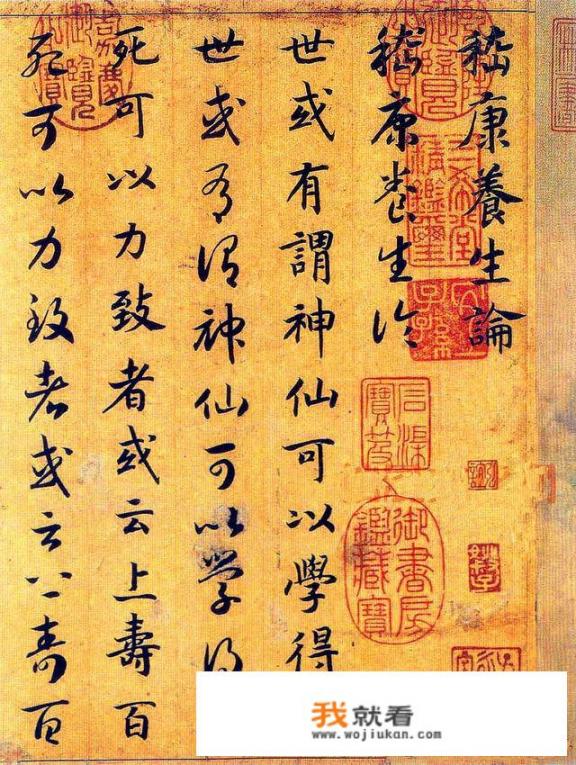 嵇康養生論
嵇康養生論
世或有謂神仙可以學得
世或有謂神仙可以學得
死可以力致者或云上壽百
死可以力致者或云上壽百
嘉慶御覽之寶
三希堂精鑑璽
宜子孫
石渠寶笈
御書房鑑藏寶
我就看
www.wojiukan.com